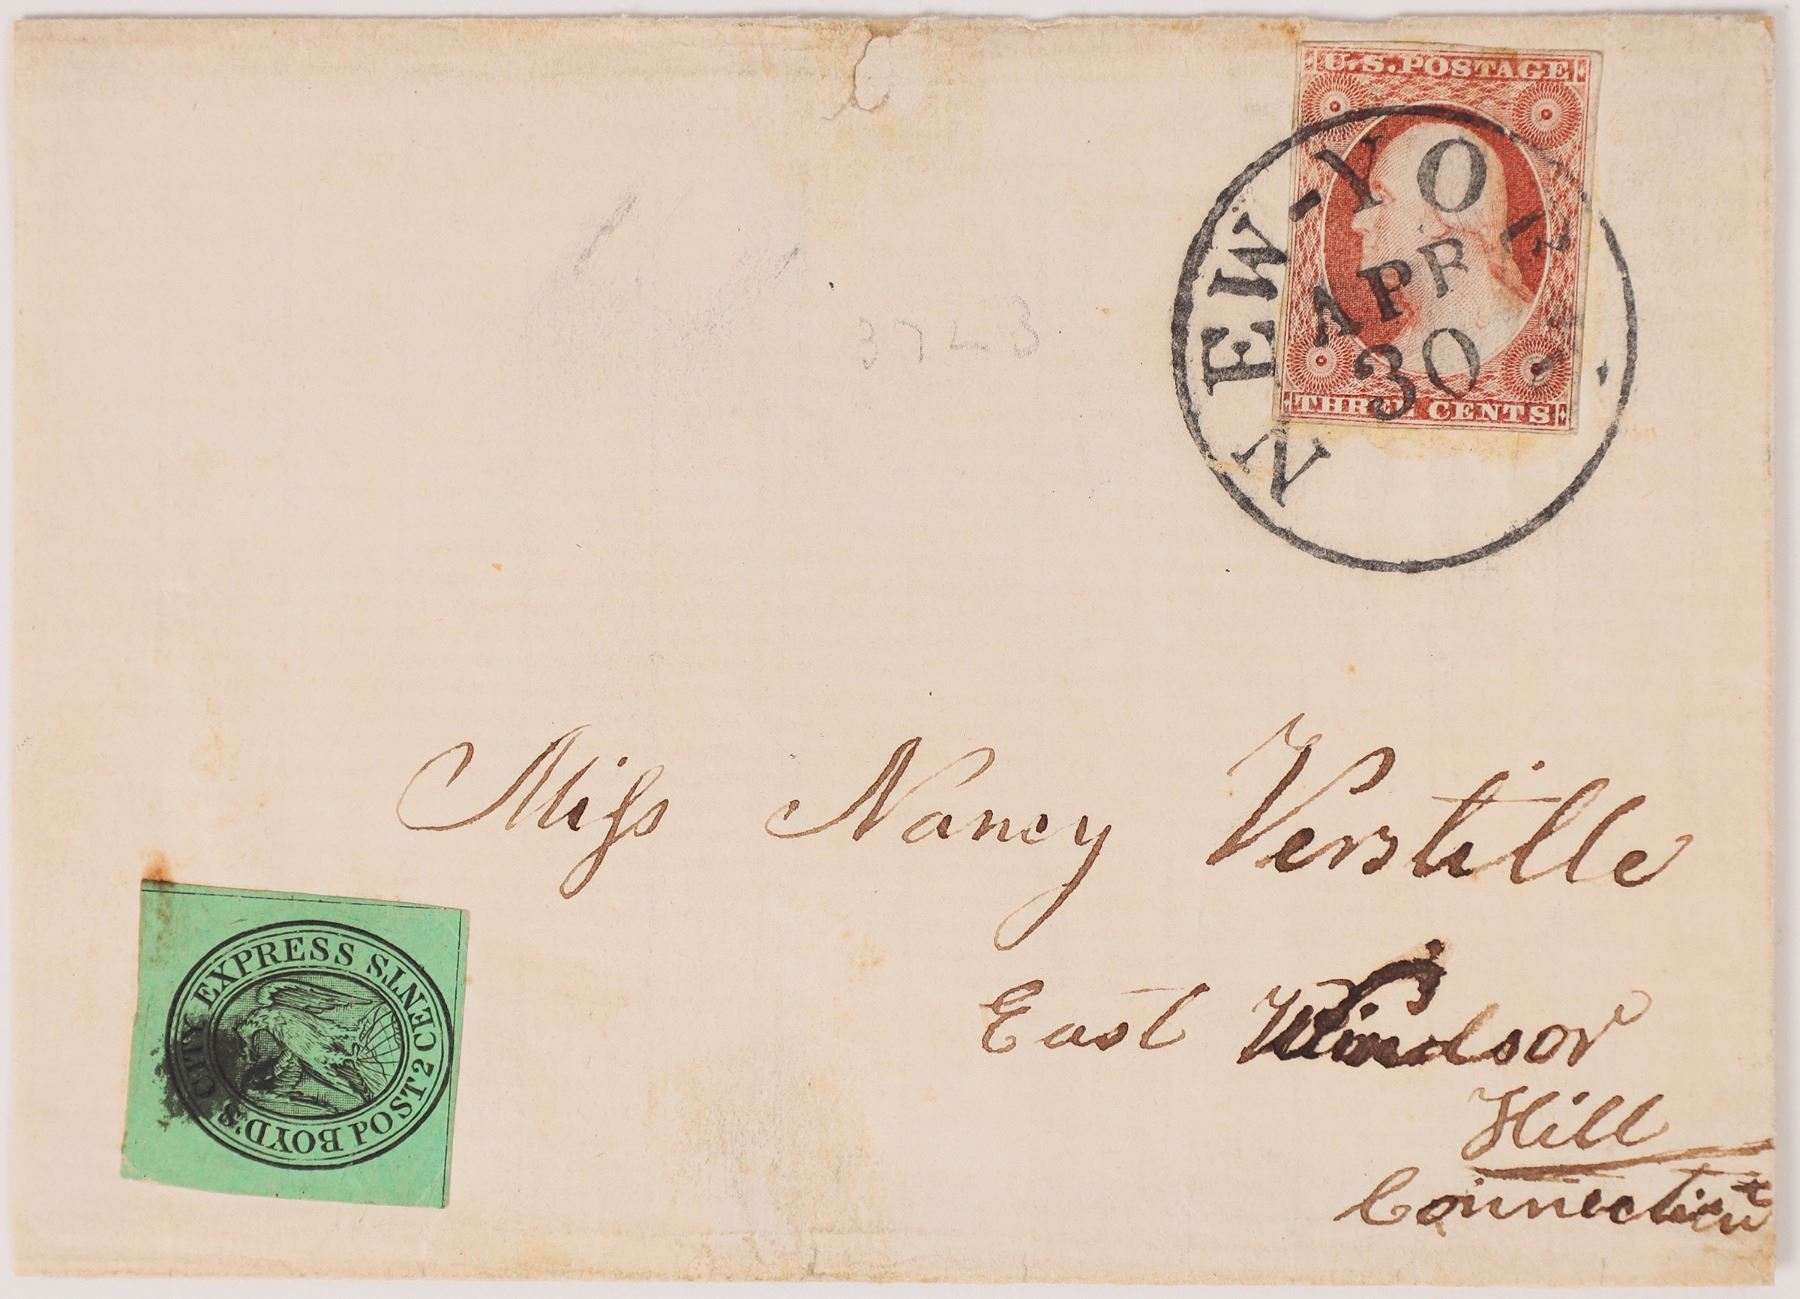 U.S. POSTAGE
THREE CENTS
NEW-YORK
APR
30
3743
Miss Nancy Verstille
East Windsor
Hill
Connecticut
BOYD'S CITY EXPRESS POST 2 CENTS